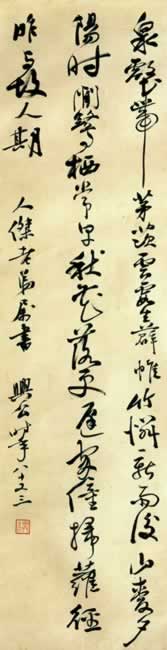 泉壑帶茅茨雲霞生薜帷竹憐新雨後山愛夕
陽時閒鷺棲常早秋花落更遲家僮掃蘿徑
昨與故人期 人傑老弟屬書 興公時年八十又三